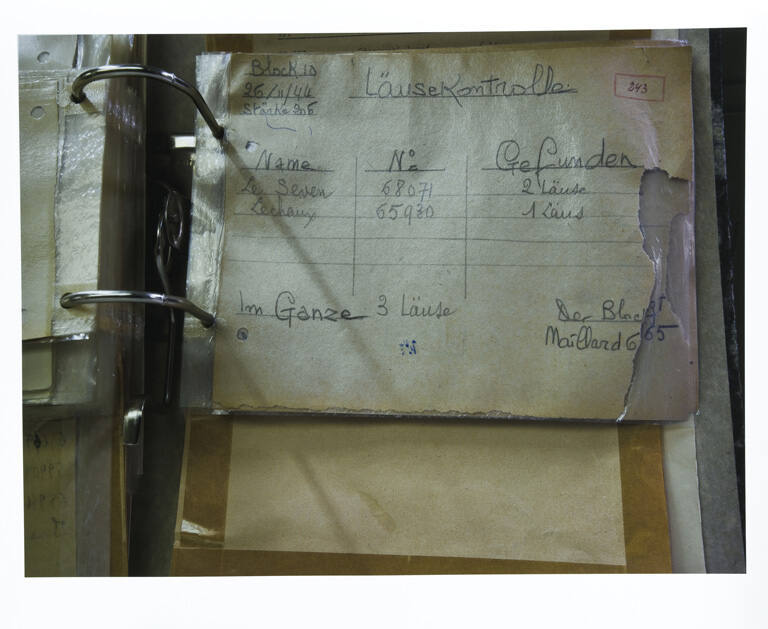 Block 10
26/11/44
Stärke 205
Läusekontrolle
243
Name
Nº
Gefunden
Le Seven 68071 2 Läuse
Lechaux 65930 1 Läus
Im Ganze 3 Läuse
Der Block
Maillard 6 65